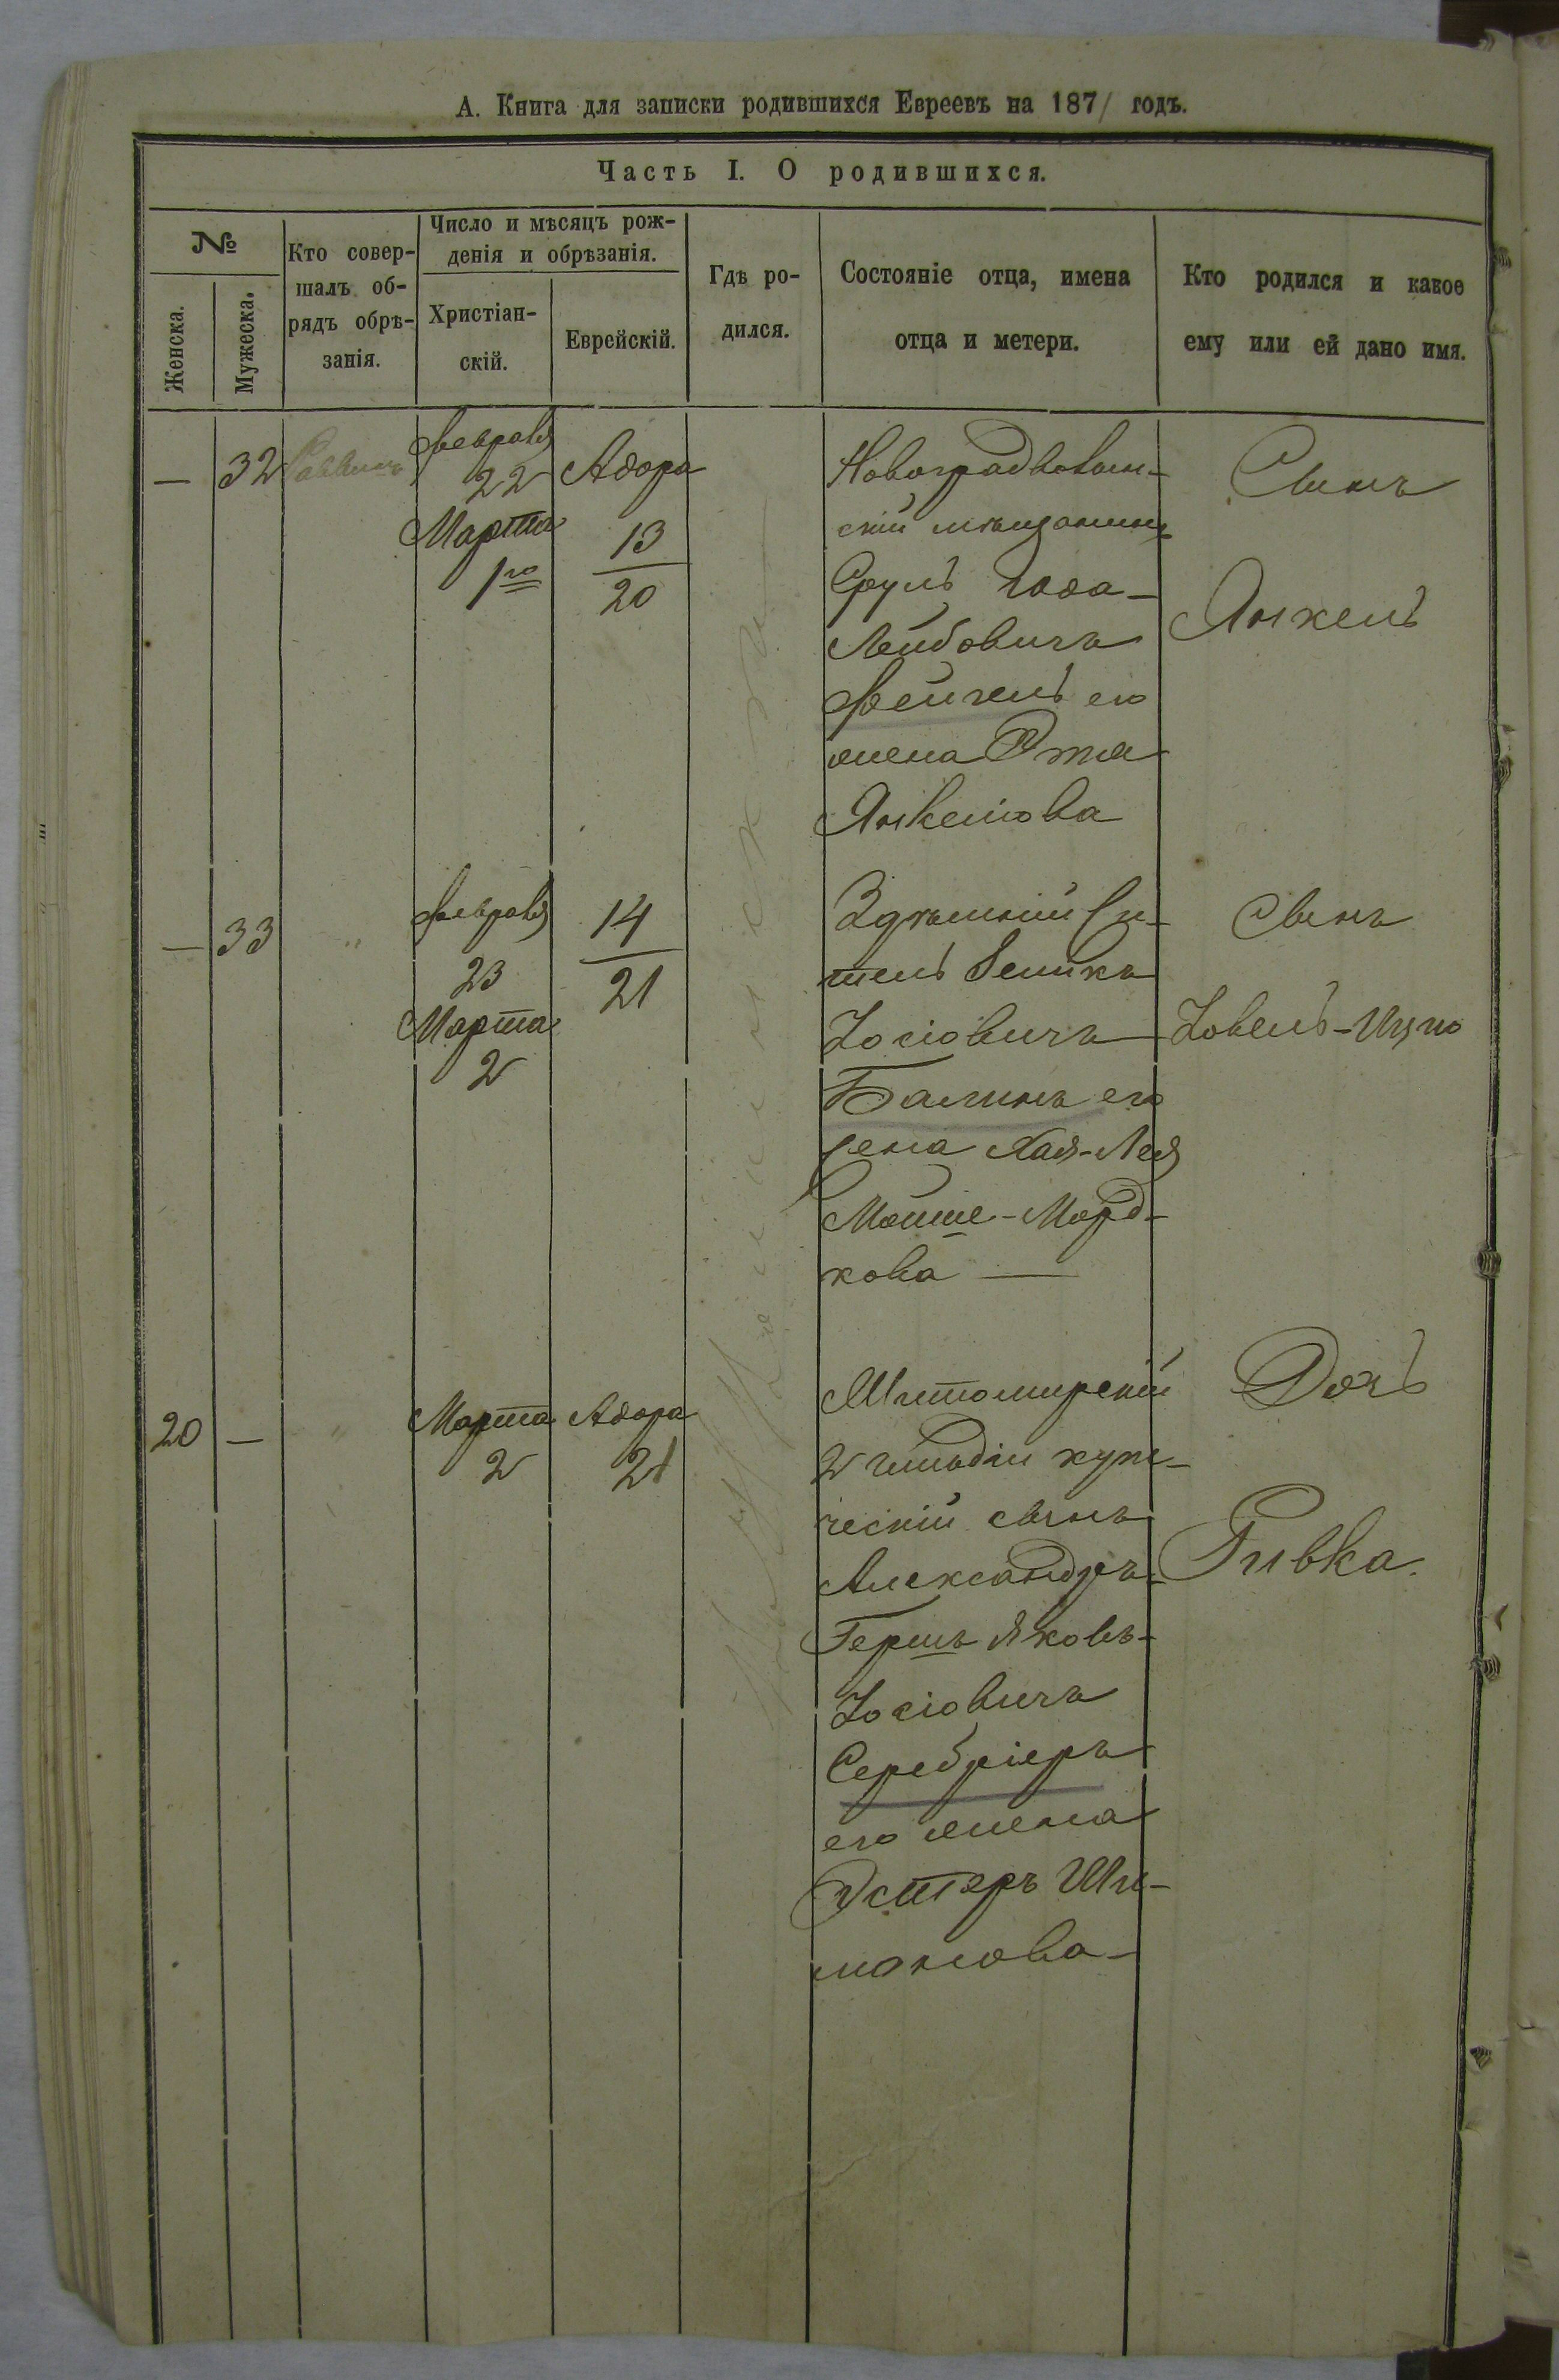 А. Книга для записки родившихся Евреевъ на 1871 годъ.
Часть I. О родившихся.
№
Женска.
Мужеска.
Кто совер-
шалъ об-
рядъ обрѣ-
занія.
Число и мѣсяцъ рож-
денія и обрѣзанія.
Христіан-
скій.
Еврейскій.
Гдѣ ро-
дился.
Состояніе отца, имена
отца и метери.
Кто родился и какое
ему или ей дано имя.
— 32 Раввинъ
Февраля
22
Марта
1го
Адора
13
20
Новоградволын-
скій мѣщанинъ
Сруль Юда-
Лейбовичъ
Фейгель его
жена Этя
Янкелюва
Сынъ
Янкель
— 33 "
Февраля
23
Марта
2
14
21
Здѣшній жи-
тель Зеликъ
Іосіовичъ
Балинъ его
жена Хая-Лея
Мойше-Морд-
кова —
Сынъ
Іовель-Ицко
20 — "
Марта
2
Адора
21
Житомирскій
2 гильдіи купе-
ческій сынъ
Александръ-
Гершъ Яковъ-
Іосіовичъ
Серебріеръ
его жена
Эстеръ Ши-
монова
Дочь
Ривка.